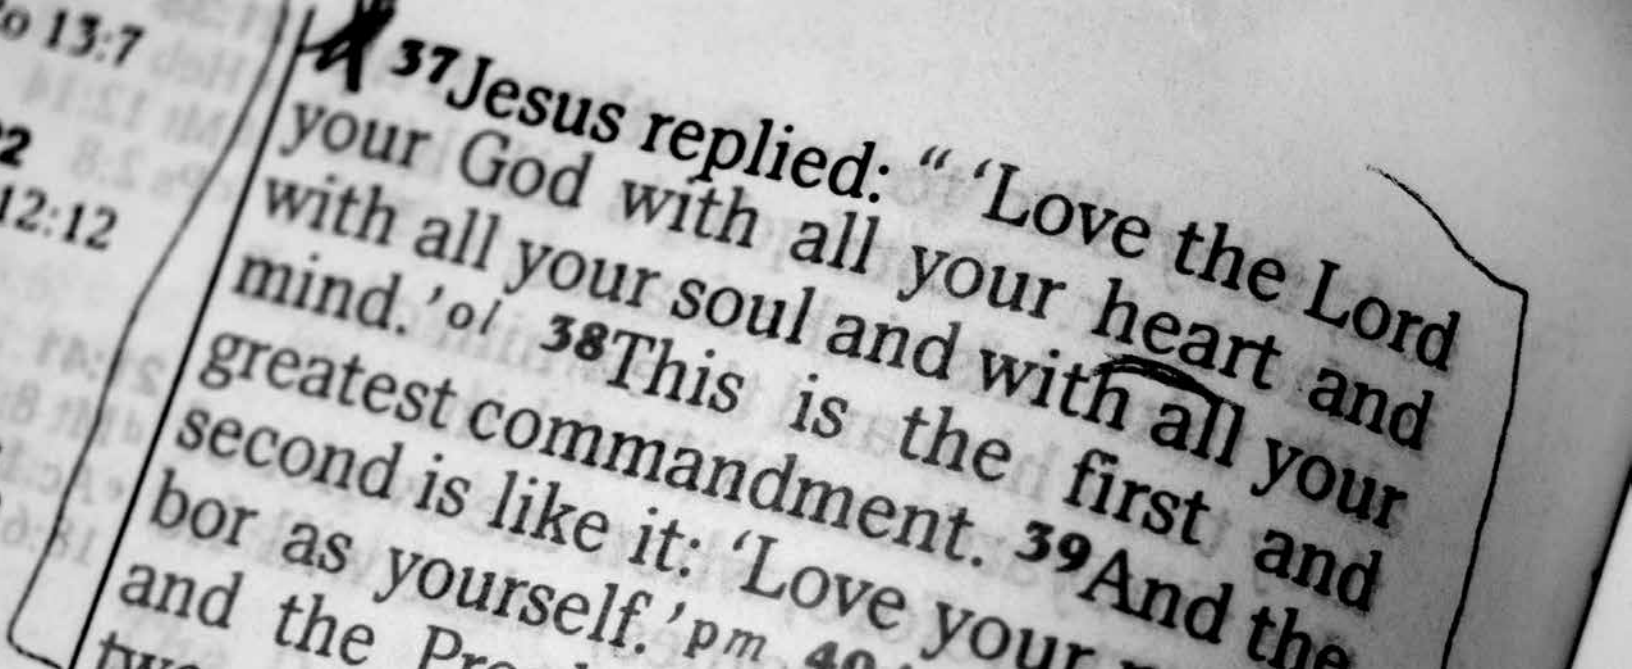 o 13:7
2
12:12
37Jesus replied: “ ‘Love the Lord
your God with all your heart and
with all your soul and with all your
mind.’ol 38This is the first and
greatest commandment. 39And the
second is like it: ‘Love your
bor as yourself.’pm 40
and the